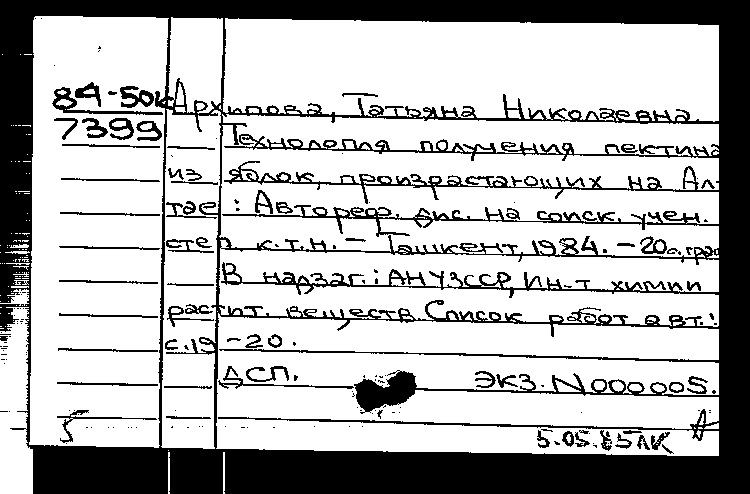 84-50к Архипова, Татьяна Николаевна.
7399 Технология получения пектина
из яблок, произрастающих на Ал-
тае : Автореф. дис. на соиск. учен.
степ. к.т.н. - Ташкент, 1984. - 20с, гра
В надзаг.: АН УзССР, Ин-т химии
растит. веществ. Список работ авт.:
с.19-20.
ДСП. ЭКЗ. N000005.
5
5.05.85 ЛК